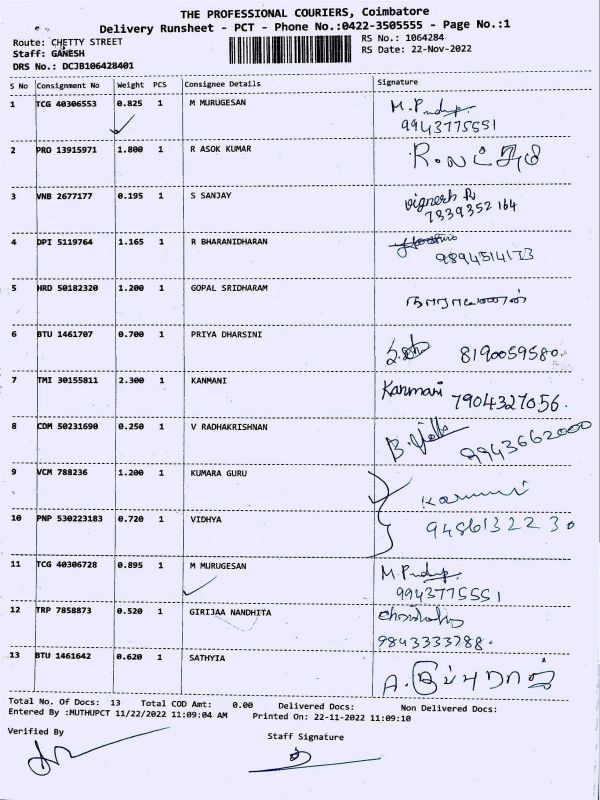 THE PROFESSIONAL COURIERS, Coimbatore
Delivery Runsheet - PCT - Phone No.:0422-3505555 - Page No.:1
Route: CHETTY STREET RS No.: 1064284
Staff: GANESH RS Date: 22-Nov-2022
DRS No.: DCJB106428401
S No Consignment No Weight PCS Consignee Details Signature
1 TCG 40306553 0.825 1 M MURUGESAN
9943775551
2 PRO 13915971 1.800 1 R ASOK KUMAR
3 VNB 2677177 0.195 1 S SANJAY Vignesh R
7339352164
4 DPI 5119764 1.165 1 R BHARANIDHARAN
9894514173
5 HRD 50182320 1.200 1 GOPAL SRIDHARAM
6 BTU 1461707 0.700 1 PRIYA DHARSINI 8190059580.
7 TMI 30155811 2.300 1 KANMANI Kanmani 7904327056.
8 CDM 50231690 0.250 1 V RADHAKRISHNAN 9943662000
9 VCM 788236 1.200 1 KUMARA GURU
10 PNP 530223183 0.720 1 VIDHYA 9486132230
11 TCG 40306728 0.895 1 M MURUGESAN
9943775551
12 TRP 7858873 0.520 1 GIRIJAA NANDHITA
9843333788.
13 BTU 1461642 0.620 1 SATHYIA
Total No. Of Docs: 13 Total COD Amt: 0.00 Delivered Docs: Non Delivered Docs:
Entered By :MUTHUPCT 11/22/2022 11:09:04 AM Printed On: 22-11-2022 11:09:10
Verified By Staff Signature